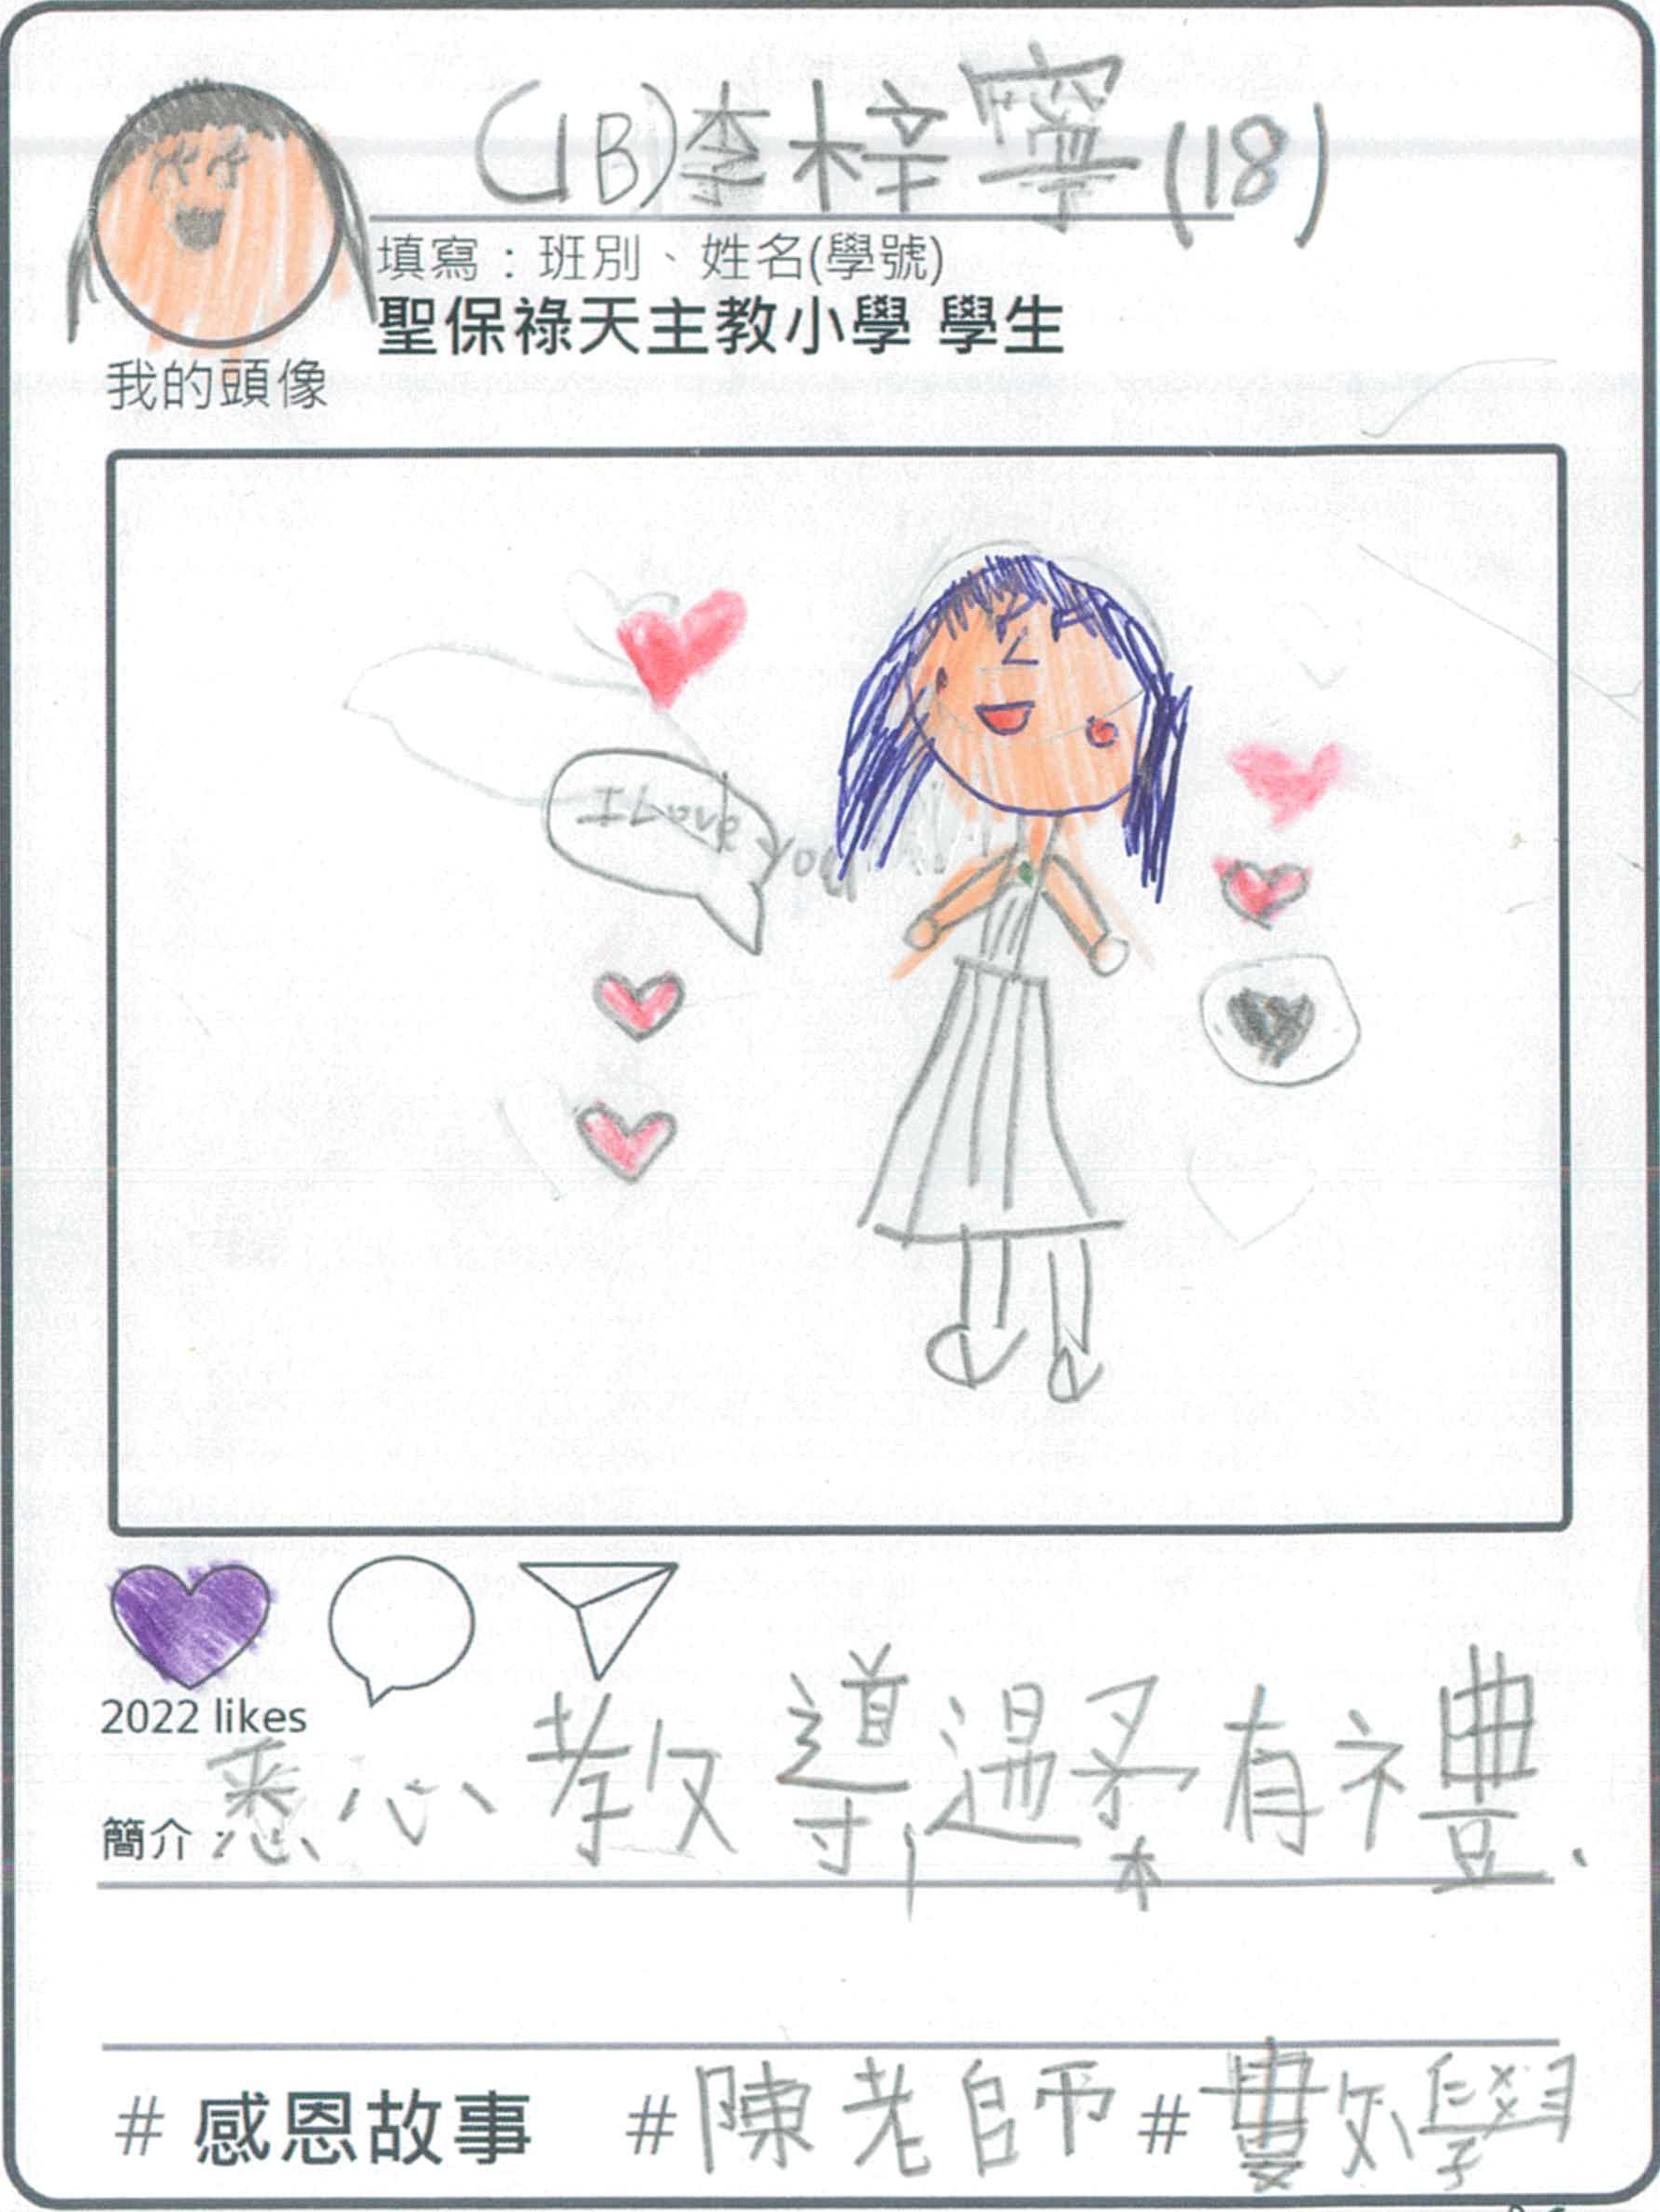 (1B)李梓寧(18)
填寫：班別、姓名(學號)
聖保祿天主教小學 學生
我的頭像
I Love you
2022 likes
簡介：悉心教導，溫柔有禮.
#感恩故事 #陳老師 #數學